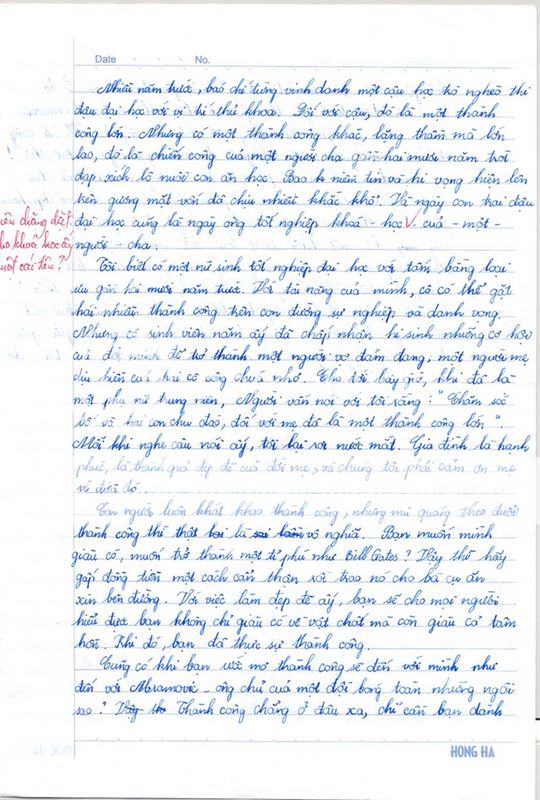 Date No.
Nhiều năm trước, báo chí từng vinh danh một cậu học trò nghèo thi
đậu đại học với vị trí thủ khoa. Đối với cậu, đó là một thành
công lớn. Nhưng có một thành công khác, lặng thầm mà lớn
lao, đó là chiến công của một người cha gần hai mươi năm trời
đạp xích lô nuôi con ăn học. Bao niềm tin và hi vọng hiện lên
trên gương mặt vốn đã chịu nhiều khắc khổ. Và ngày con trai đậu
đại học cũng là ngày ông tốt nghiệp khoá - học V của - một -
người - cha.
nên chăng đặt
cho khoá học ấy
một cái tên?
Tôi biết có một nữ sinh tốt nghiệp đại học với tấm bằng loại
ưu gần hai mươi năm trước. Với tài năng của mình, cô có thể gặt
hái nhiều thành công trên con đường sự nghiệp và danh vọng.
Nhưng cô sinh viên năm ấy đã chấp nhận hi sinh những cơ hội
của đời mình để trở thành một người vợ đảm đang, một người mẹ
dịu hiền của hai cô công chúa nhỏ. Cho tới bây giờ, khi đã là
một phụ nữ trung niên, Người vẫn nói với tôi rằng: "Chăm sóc
bố và hai con chu đáo, đối với mẹ đã là một thành công lớn".
Mỗi khi nghe câu nói ấy, tôi lại rơi nước mắt. Gia đình là hạnh
phúc, là thành quả đẹp đẽ của đời mẹ, và chúng tôi phải cảm ơn mẹ
vì điều đó.
Con người luôn khát khao thành công, nhưng mù quáng theo đuổi
thành công thì thật là vô nghĩa. Bạn muốn mình
giàu có, muốn trở thành một tỉ phú như Bill Gates? Vậy thì hãy
gấp đồng tiền một cách cẩn thận rồi trao nó cho bà cụ ăn
xin bên đường. Với việc làm đẹp đẽ ấy, bạn sẽ cho mọi người
hiểu được bạn không chỉ giàu có về vật chất mà còn giàu có tâm
hồn. Khi đó, bạn đã thực sự thành công.
Cũng có khi bạn ước mơ thành công sẽ đến với mình như
đến với Abramovic - ông chủ của một đội bóng toàn những ngôi
sao? Thành công chẳng ở đâu xa, chỉ cần bạn dành
HONG HA